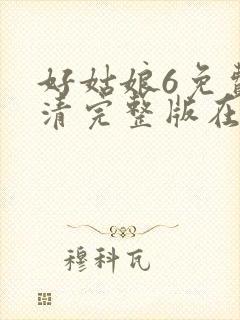 好姑娘6免费
清完整版在
穆科瓦